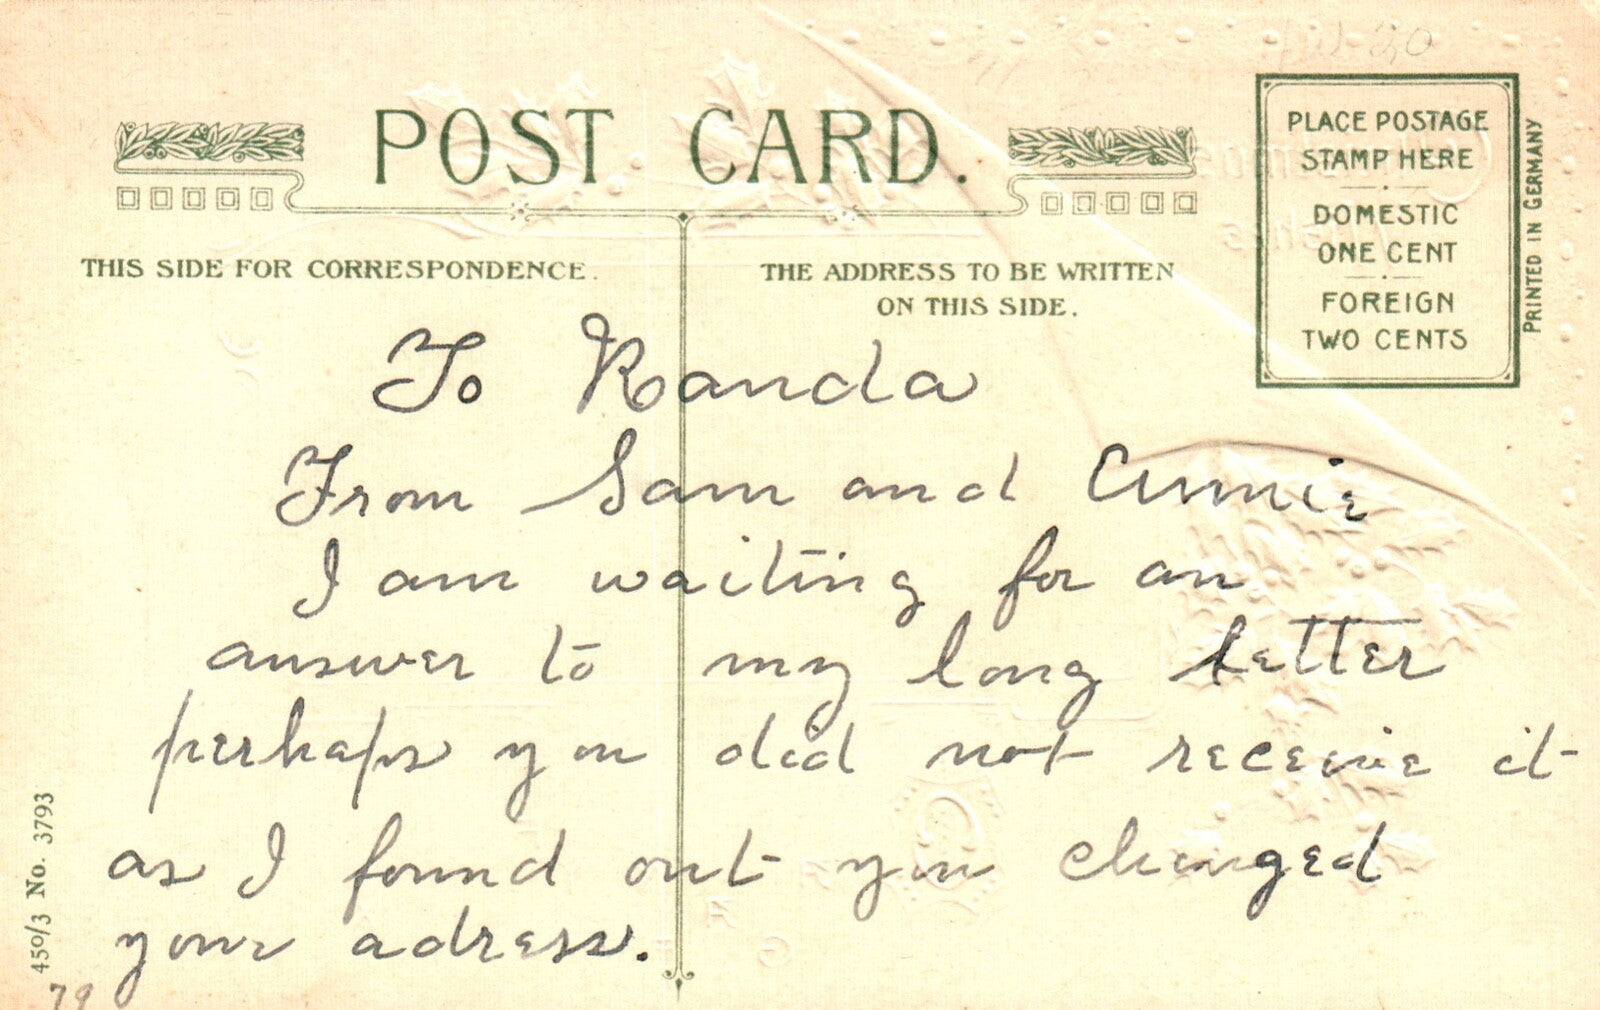 POST CARD.
THIS SIDE FOR CORRESPONDENCE.
THE ADDRESS TO BE WRITTEN
ON THIS SIDE.
PLACE POSTAGE
STAMP HERE
DOMESTIC
ONE CENT
FOREIGN
TWO CENTS
PRINTED IN GERMANY
To Randa
From Sam and Annie
I am waiting for an
answer to my long letter
perhaps you did not receive it
as I found out you changed
your adress.
450/3 No. 3793
79